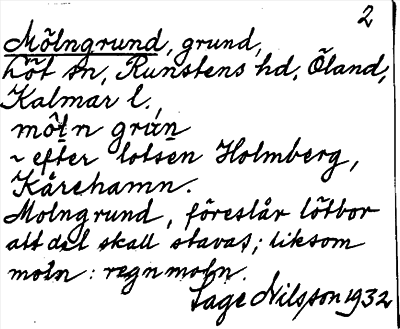 2
Mölngrund, grund,
Löt sn, Runstens hd, Öland,
Kalmar l.,
möln grun
~ efter lotsen Holmberg,
Kårehamn.
Molngrund, föreslår lötbor
att det skall stavas; liksom
moln: regnmoln.
Sage Nilsson 1932